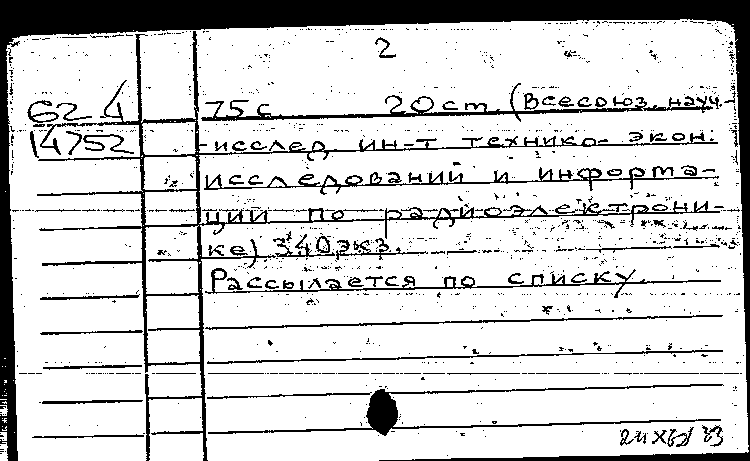 2
62 4 75 с. 20 cm. (Всесоюз. науч-
14752 -исслед. ин-т технико-экон.
исследований и информа-
ции по радиоэлектрони-
ке) 340 экз.
Рассылается по списку.